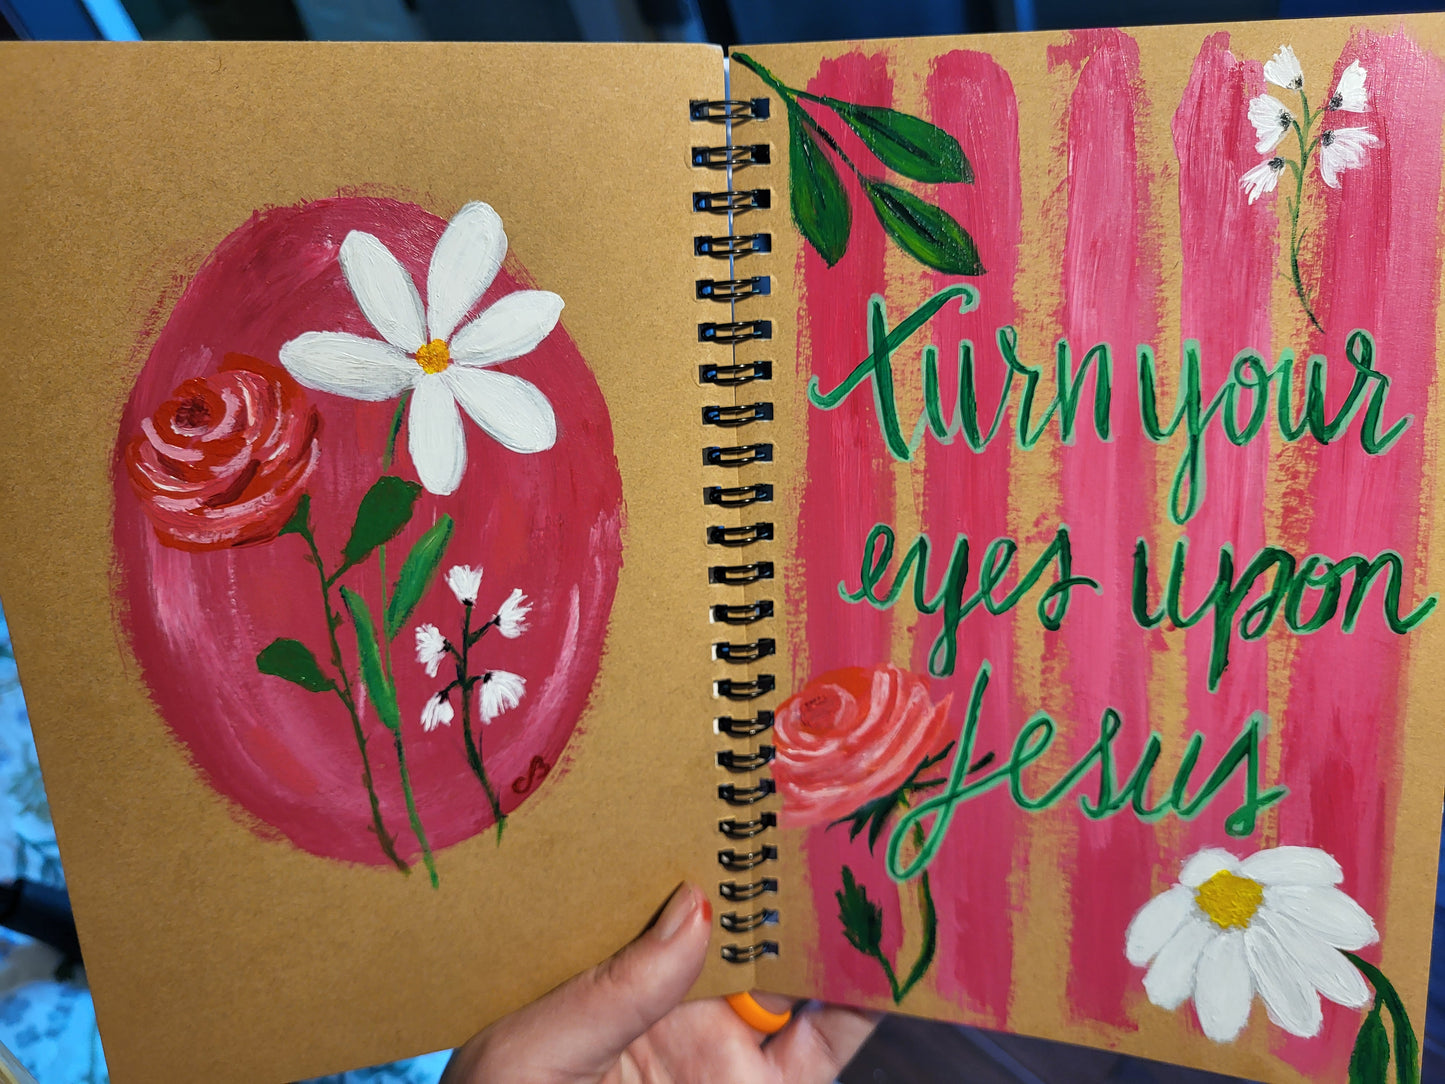 turn your
eyes upon
Jesus